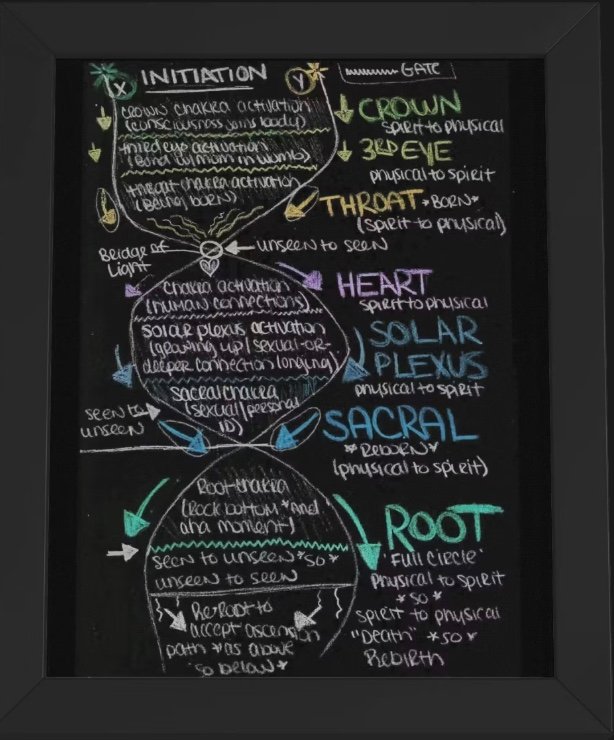 X INITIATION Y
GATE
crown chakra activation
(consciousness joins body)
third eye activation
(Bond w/mom in womb)
throat chakra activation
(Being born)
CROWN
spirit to physical
3RD EYE
physical to spirit
THROAT *BORN*
(spirit to physical)
Bridge of
Light
unseen to seen
chakra activation
(human connections)
solar plexus activation
(growing up/sexual-or-
deeper connection longing)
sacral chakra
(sexual/personal
ID)
HEART
spirit to physical
SOLAR
PLEXUS
physical to spirit
seen to
unseen
SACRAL
*REBORN*
(physical to spirit)
Root chakra
(Rock bottom *and
aha moment)
seen to unseen *so*
unseen to seen
Re-Root to
accept ascension
path *as above
so below*
ROOT
"Full Circle"
Physical to spirit
*so*
spirit to physical
"Death" *so*
Rebirth